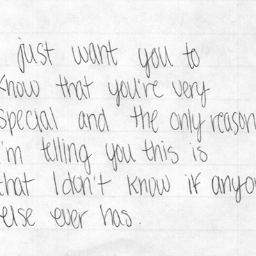 just want you to
know that you're very
special and the only reason
i'm telling you this is
that I don't know if anyo
else ever has.